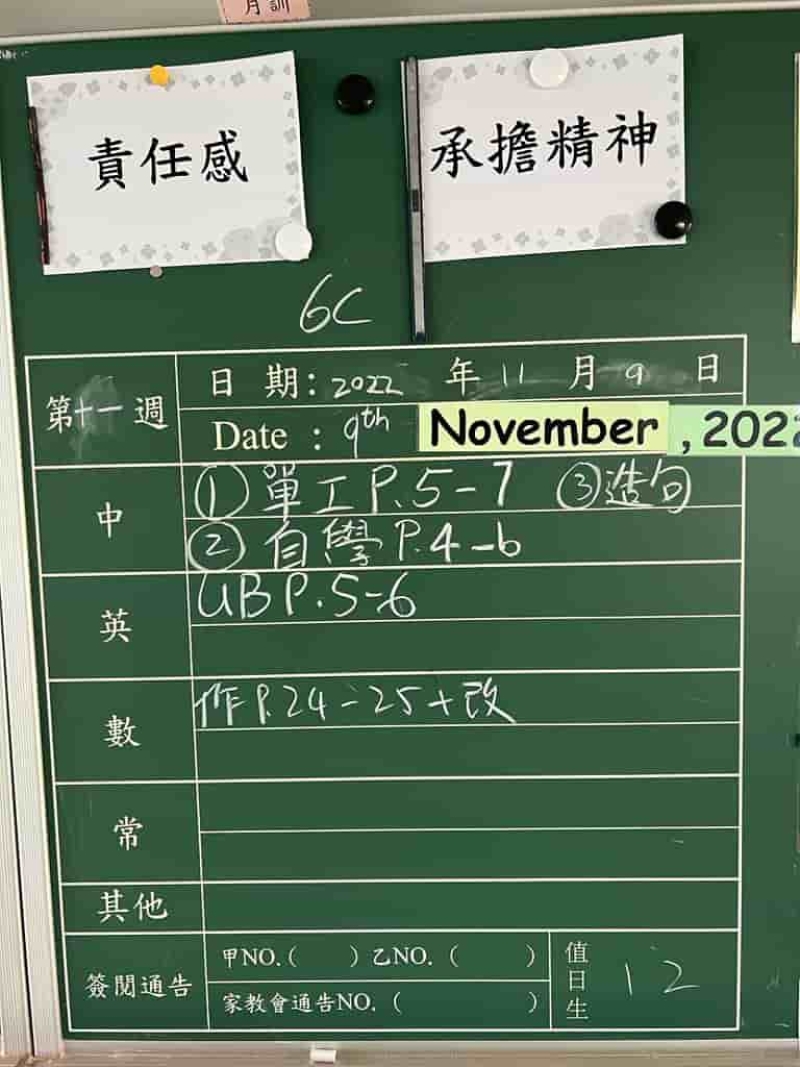 月訓
責任感
承擔精神
6C
第十一週
日 期：2022 年 11 月 9 日
Date : 9th November , 2022
中
① 單工 P.5-7 ③造句
② 自學 P.4-6
英
UB P.5-6
數
作 P.24-25+改
常
其他
簽閱通告
甲NO.( ) 乙NO. ( )
家教會通告NO. ( )
值日生
12